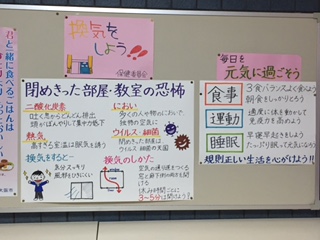 君と一緒に食べるごはんは
換気を
しよう!!
保健委員会
閉めきった部屋・教室の恐怖
二酸化炭素
吐く息からどんどん排出
頭がぼんやりして集中力低下
熱気
高すぎる室温は眠気を誘う
換気をすると…
気分スッキリ
風邪をひきにくい
におい
多くの人や物のにおいで、
独特の空気に
ウイルス・細菌
閉めきった部屋は
ウイルス・細菌の天国
換気のしかた
空気の通り道をつくる
3~5分は開けよう!
毎日を
元気に過ごそう
食事
3食バランスよく食べよう
朝食をしっかりとろう
運動
適度に体を動かして
免疫力を高めよう
睡眠
早寝早起きをしよう
たっぷり眠って元気になろう
規則正しい生活を心がけよう!!